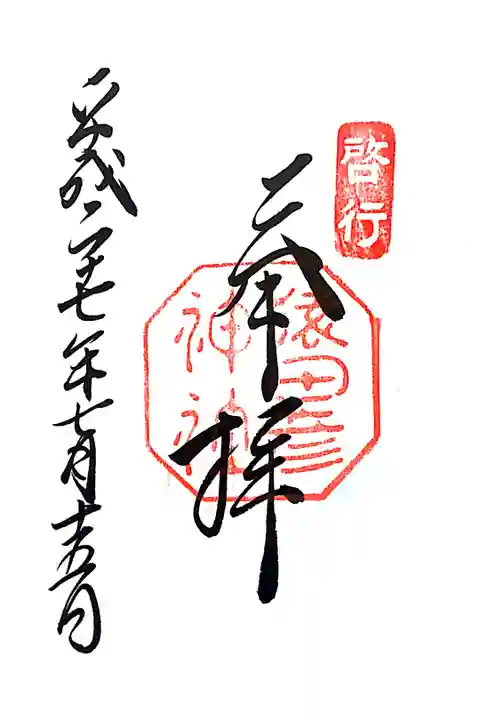 啓行
奉拝
猿田彦
神社
平成二十七年七月十五日